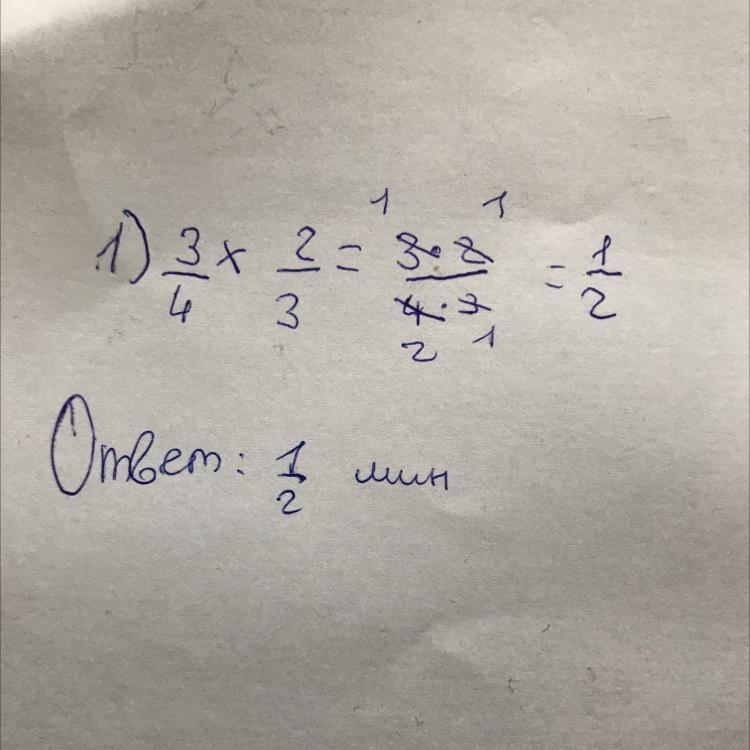 1) 3/4 x 2/3 = 3·2/4·3 = 1/2
Ответ: 1/2 мин